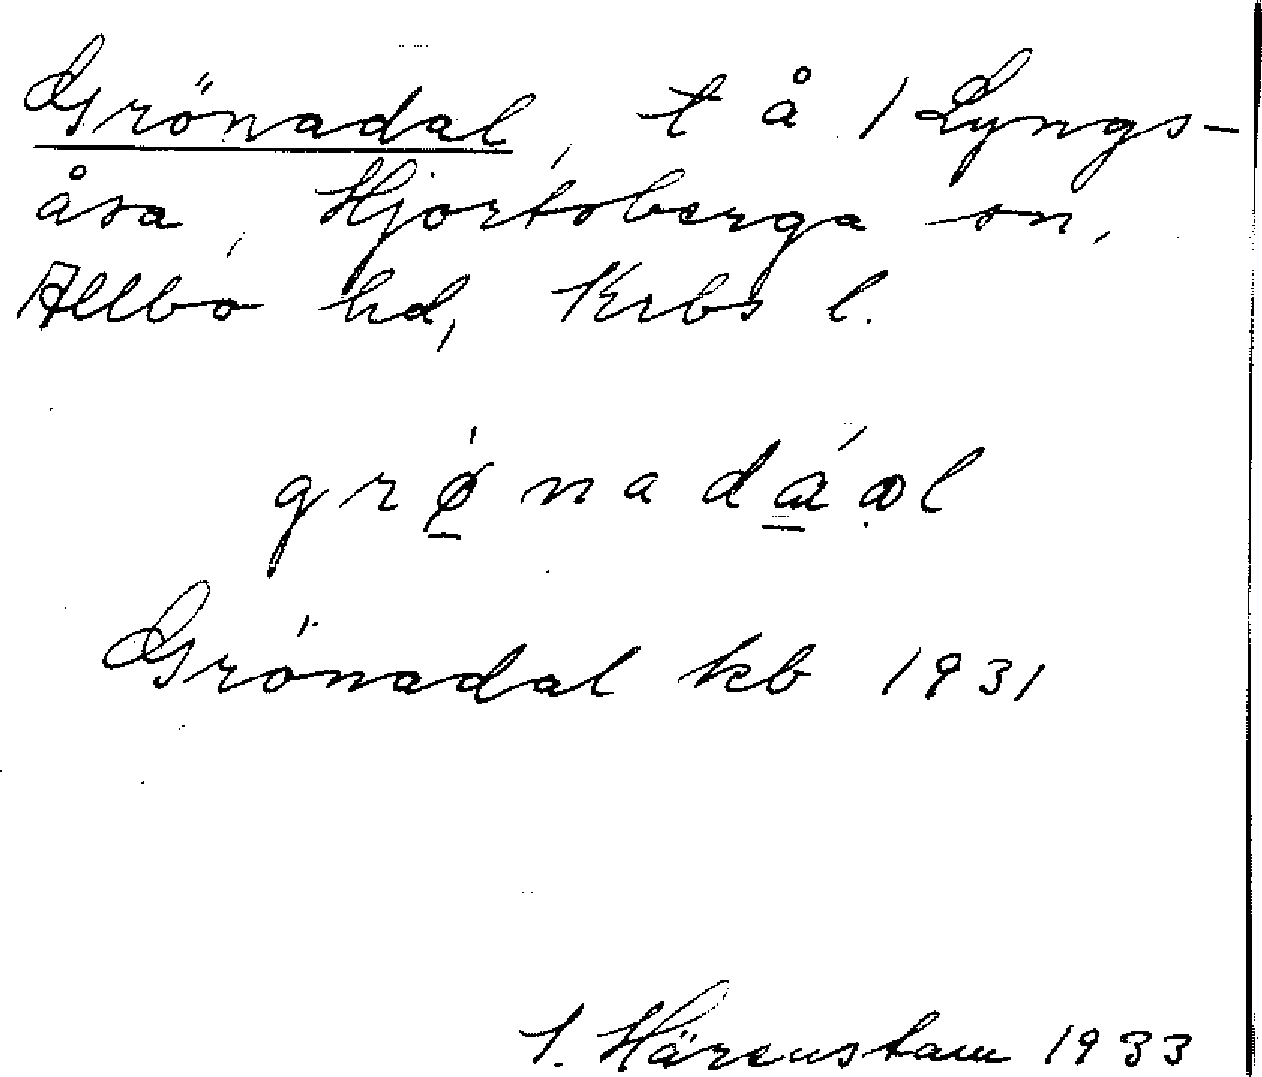 Grönadal, t å 1 Lyngs-
åsa, Hjortsberga sn,
Allbo hd, Krbs l.
grǿ̱nadá̱ɷl
Grönadal kb 1931
I. Härenstam 1933